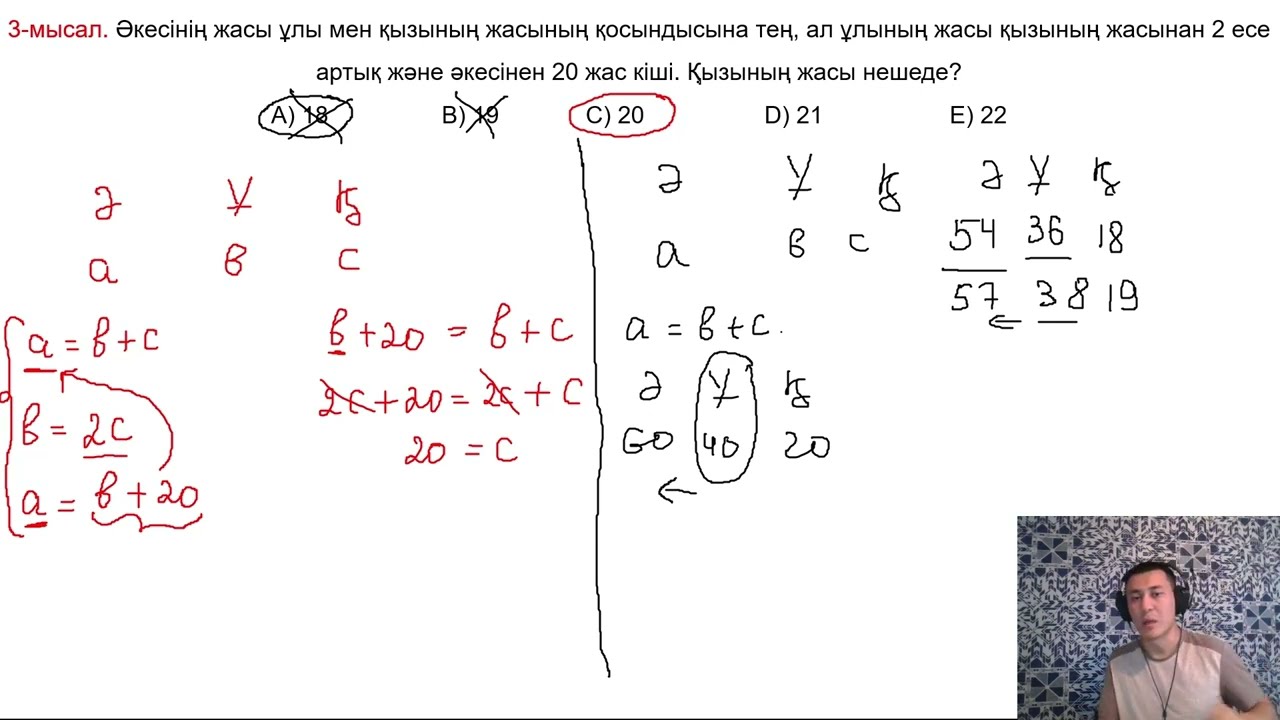 3-мысал. Әкесінің жасы ұлы мен қызының жасының қосындысына тең, ал ұлының жасы қызының жасынан 2 есе
артық және әкесінен 20 жас кіші. Қызының жасы нешеде?
A) 18 B) 19 C) 20 D) 21 E) 22
Ә Ұ Қ
а в с
а = в + с
в = 2с
а = в + 20
в + 20 = в + с
2с + 20 = 2с + с
20 = с
Ә Ұ Қ
а в с
а = в + с.
Ә Ұ Қ
60 40 20
←
Ә Ұ Қ
54 36 18
57 38 19
←